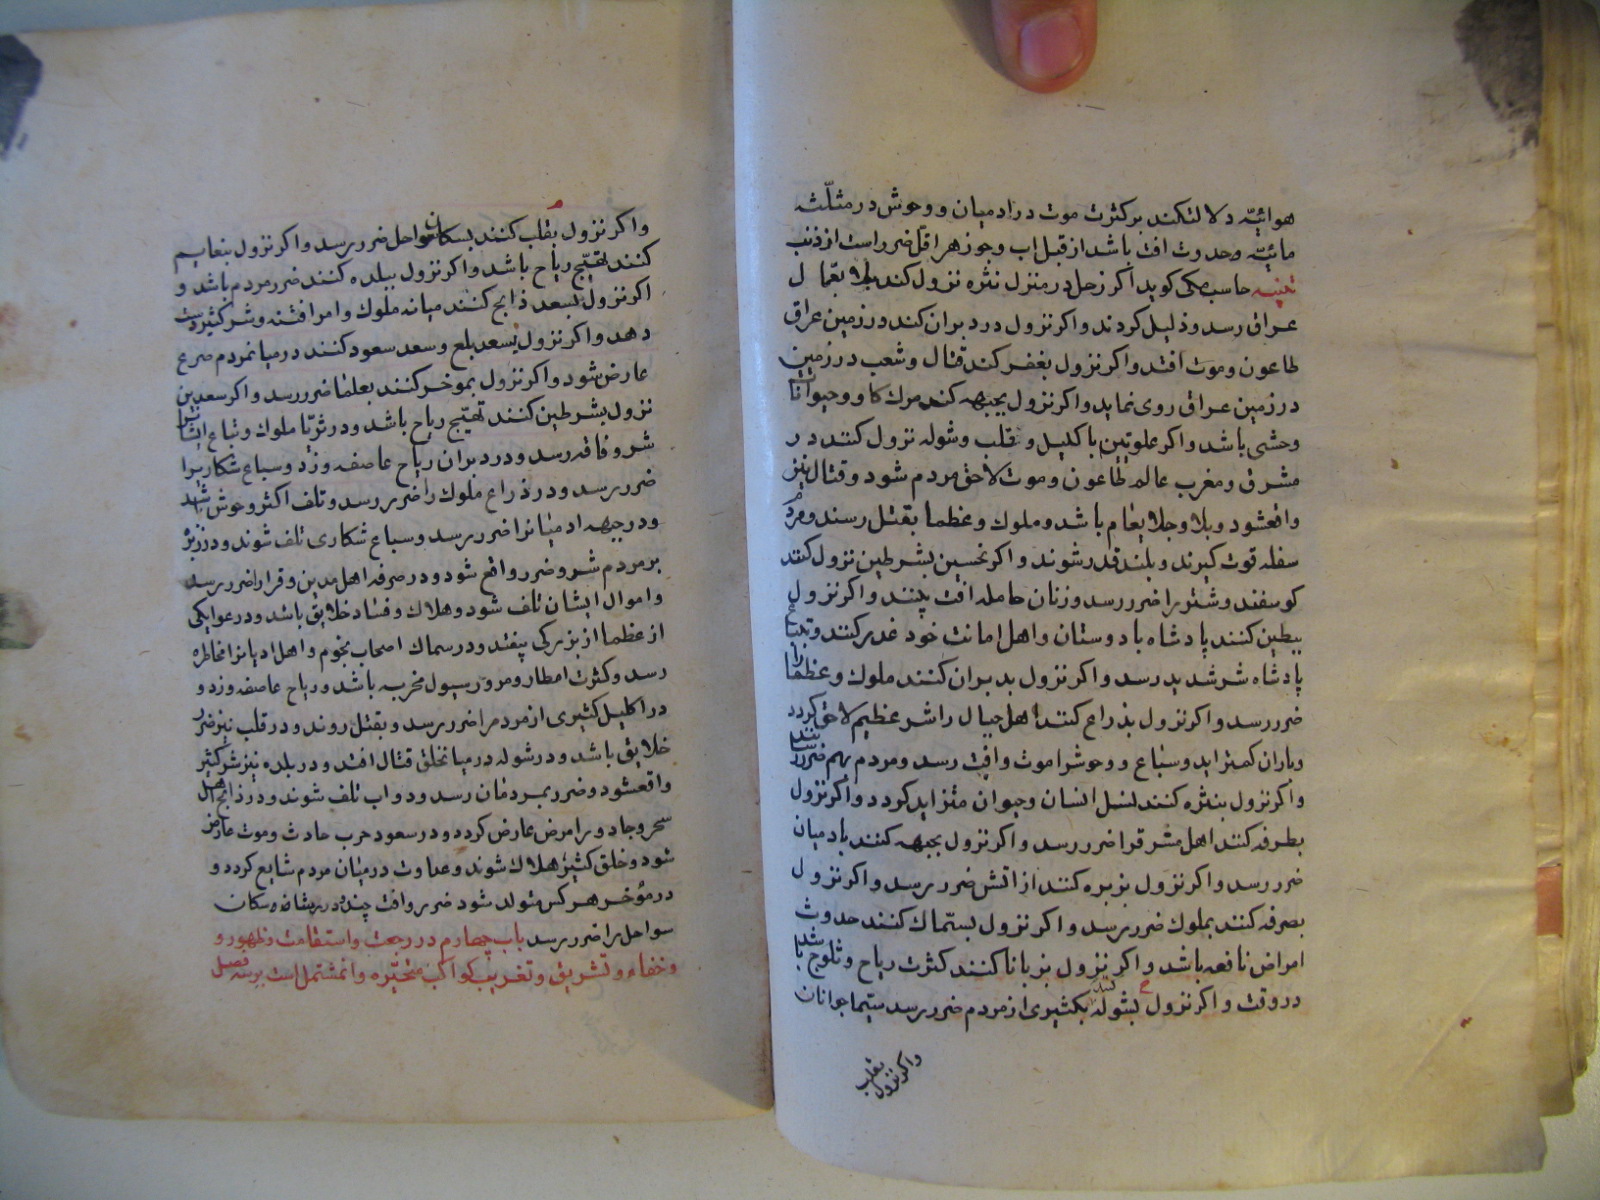 هوائیّه دلالت‌کند بر کثرت موت در ادمیان و وحوش در مثلّثه
مائیّه وحدوث افت باشد از قبل اب وجوزهر اقل ضرر است از ذنب
تنبیه حاسب مکی کوید اکر زحل در منزل نثره نزول کند بلا بعمّال
عراق رسد وذلیل کردند واکر نزول در دبران کند در زمین عراق
طاعون وموت افتد واکر نزول بغفر کند قتال وشعب در زمین
در زمین عراق روی نماید واکر نزول بجبهه کند مرك کاو وحیوانات
وحشی باشد واکر علویّین باکلیل و قلب وشوله نزول کنند در
مشرق ومغرب عالم طاعون وموت لاحق مردم شود وقتال نیز
واقعشود وبلا وجلا بعام باشد وملوك وعظما بقتل رسند ومردم
سفله قوت کیرند وبلند قدر شوند واکر نحسین بشرطین نزول کنند
کوسفند وشتر را ضرر رسد وزنان حامله افت بینند واکر نزول
ببطین کنند پادشاه با دوستان واهل امانت خود غدر کنند
پادشاه شر شدید رسد واکر نزول بدبران کنند ملوك وعظما را
ضرر رسد واکر نزول بذراع کنند اهل جبال را شر عظیم لاحق کردد
وباران کمتر اید وسباع ووحوش را موت وافت رسد ومردم بهم ضرر رسانند
واکر نزول بنثره کنند نسل انسان وحیوان متزاید کردد واکر نزول
بطرفه کنند اهل مشرق را ضرر رسد واکر نزول بجبهه کنند بادمیان
ضرر رسد واکر نزول بزبره کنند از اتش ضرر رسد واکر نزول
بصرفه کنند بملوك ضرر رسد واکر نزول بسّماك کنند حدوث
امراض نافعه باشد واکر نزول بزبانا کنند کثرت ریاح وثلوج باشد
در وقت واکر نزول بشوله کنند بکثیری از مردم ضرر رسد سیّما جوانان
واکر نزول
بقلب
واکر نزول بقلب کنند بسکان سواحل ضرر رسد واکر نزول بنعایم
کنند تهیّج ریاح باشد واکر نزول ببلده کنند ضرر مردم باشد و
اکر نزول بسعد ذابح کنند میانه ملوك وامرا فتنه وشر کثیر دست
دهد واکر نزول بسعد بلع وسعد سعود کنند در میان مردم صرع
عارض شود واکر نزول بموخر کنند بعلما ضرر رسد واکر سعدین
نزول بشرطین کنند تهیّج ریاح باشد ودر ثریّا ملوك وتباع ایشانرا
شر وفاقه رسد ودر دبران ریاح عاصفه وزد وسباع شکاریرا
ضرر رسد ودر ذراع ملوك را ضرر رسد وتلف اکثر وحوش شود
ودر جبهه ادمیانرا ضرر رسد وسباع شکاری تلف شوند ودر زبره
بر مردم شر وضرر واقع شود ودر صرفه اهل مدین وقرا را ضرر رسد
واموال ایشان تلف شود وهلاك وفساد خلایق باشد ودر عوا یکی
از عظما از بزرکی بیفتد ودر سماك اصحاب نجوم واهل ادیانرا مخاطره
رسد وکثرت امطار ومرور سیول مخربه باشد وریاح عاصفه وزد و
در اکلیل کثیری از مردم را ضرر رسد وبقتل روند ودر قلب نیز ضرر
خلایق باشد ودر شوله در میان خلق قتال افتد ودر بلده نیز شر کثیر
واقعشود وضرر بمردمان رسد ودواب تلف شوند ودر ذابح اهل
سحر وجادو را مرض عارض کردد ودر سعود حرب حادث وموت عارض
شود وخلق کثیر هلاك شوند وعداوت در میان مردم شایع کردد و
در مؤخر هر کس متولد شود ضرر وافت بیند ودر رشا وسکان
سواحل را ضرر رسد باب چهارم در رجعت واستقامت وظهور و
وخفاء وتشریق وتغریب کواکب متحیّره وانمشتمل است بر سه فصل